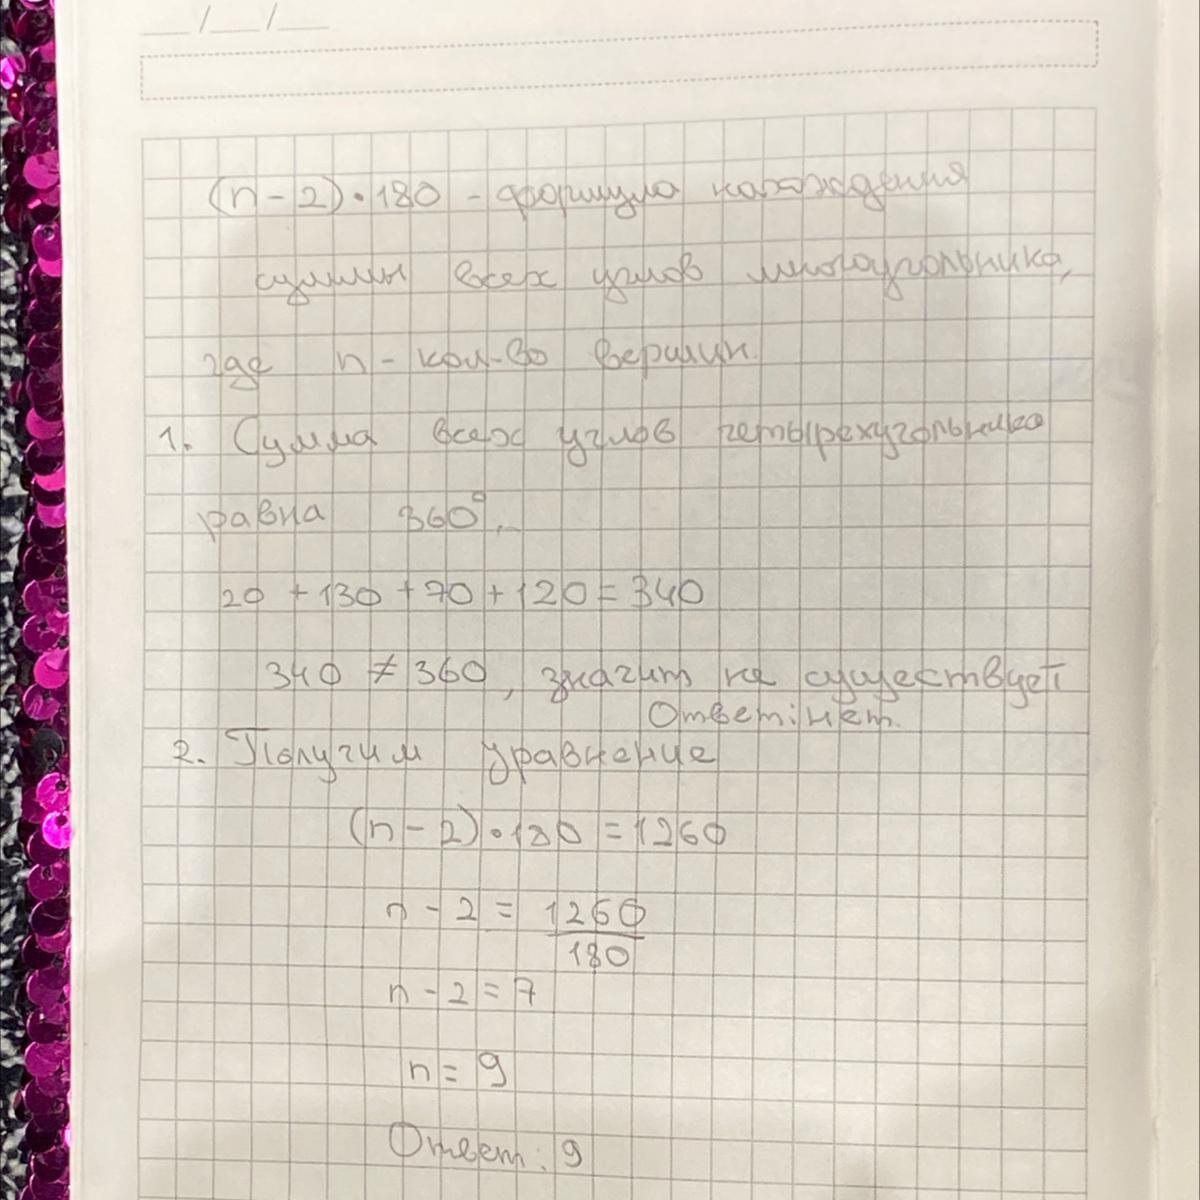 (n-2)•180 - формула нахождения
суммы всех углов многоугольника,
где n - кол-во вершин.
1. Сумма всех углов четырехугольника
равна 360°.
20 + 130 + 70 + 120 = 340
340 ≠ 360, значит не существует
Ответ: нет.
2. Получим уравнение
(n-2)•180 = 1260
n - 2 = 1260/180
n - 2 = 7
n = 9
Ответ: 9